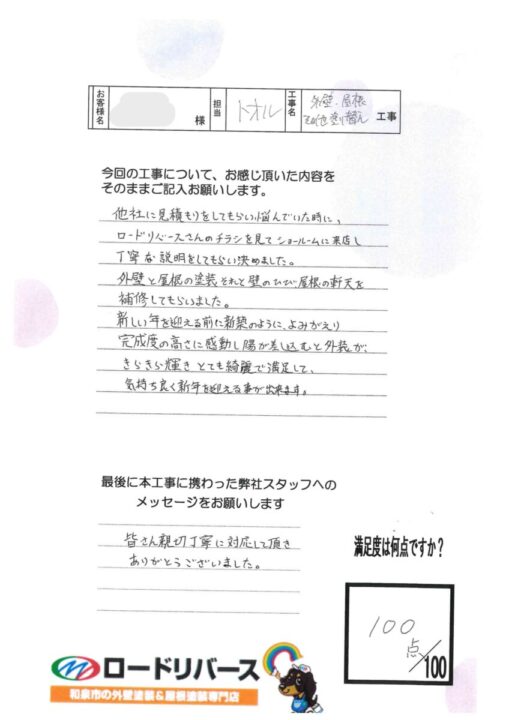 お客様名
様
担当
トオル
工事名
外壁・屋根
その他塗り替え
工事
今回の工事について、お感じ頂いた内容を
そのままご記入お願いします。
他社に見積もりをしてもらい悩んでいた時に、
ロードリバースさんのチラシを見てショールームに来店し
丁寧な説明をしてもらい決めました。
外壁と屋根の塗装それと壁のひび、屋根の軒天を
補修してもらいました。
新しい年を迎える前に新築のように、よみがえり
完成度の高さに感動し陽が差し込むと外装が、
きらきら輝きとても綺麗で満足して、
気持ち良く新年を迎える事が出来ます。
最後に本工事に携わった弊社スタッフへの
メッセージをお願いします
皆さん親切丁寧に対応して頂き
ありがとうございました。
満足度は何点ですか?
100
点/100
ロードリバース
和泉市の外壁塗装&屋根塗装専門店